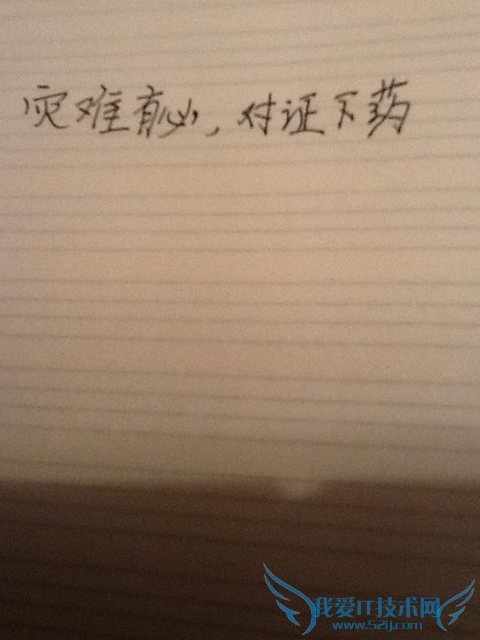 灾难有心,对证下药
我爱IT技术网
www.52ij.com